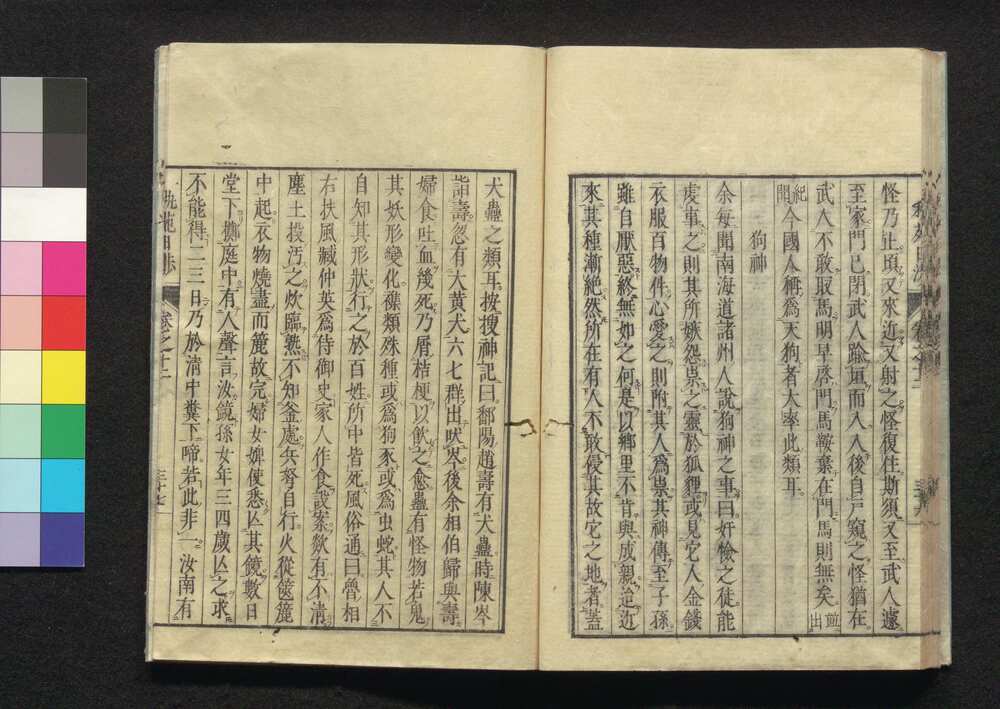 怪乃止頃又來近又射之怪復住斯須又至武人遽
至家門已閉武人踰垣而入入後自戸窺之怪猶在
武人不敢取馬明早啓門馬鞍棄在門馬則無矣出
紀聞今國人稱爲天狗者大率此類耳
狗神
余每聞南海道諸州人說狗神之事曰奸憸之徒能
虔事之則其所嫉怨祟之靈於狐貍或見它人金錢
衣服百物件心愛之則附其人爲祟其神傳至子孫
雖自厭惡終無如之何是以鄉里不肯與成親迨近
來其種漸絶然所在有人不敢侵其故它之地者蓋
卷之十二
三十六
犬蠱之類耳按搜神記曰鄱陽趙壽有犬蠱時陳岑
詣壽忽有大黄犬六七群出吠岑後余相伯歸與壽
婦食吐血幾死乃屑桔梗以飲之愈蠱有怪物若鬼
其妖形變化襍類殊種或爲狗豕或爲虫蛇其人不
自知其形狀行之於百姓所中皆死風俗通曰魯相
右扶風臧仲英爲侍御史家人作食設案欻有不清
塵土投汚之炊臨熟不知釜處兵弩自行火從篋簏
中起衣物燒盡而簏故完婦女婢使悉亾其鏡數日
堂下擲庭中有人聲言汝鏡孫女年三四歲亾之求
不能得二三日乃於淸中糞下啼若此非一汝南有
卷之十二
三十七